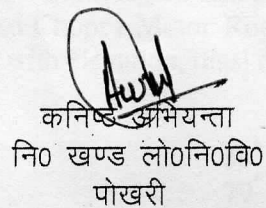 कनिष्ठ अभियन्ता
नि0 खण्ड लो0नि0वि0
पोखरी